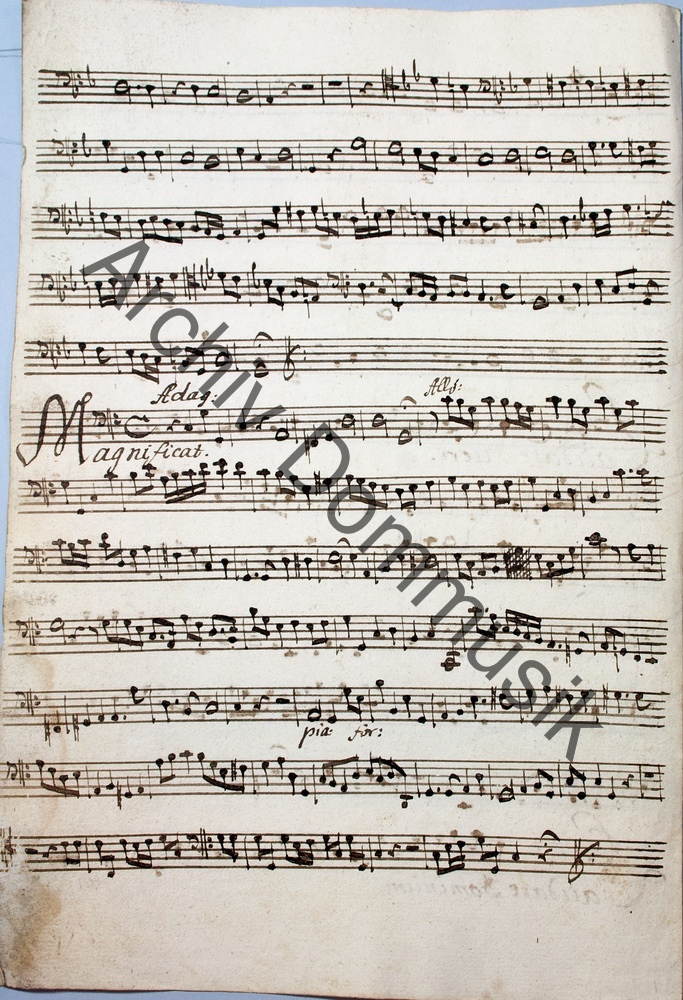 Adag: All:
Magnificat.
pia: for:
Archiv Dommusik